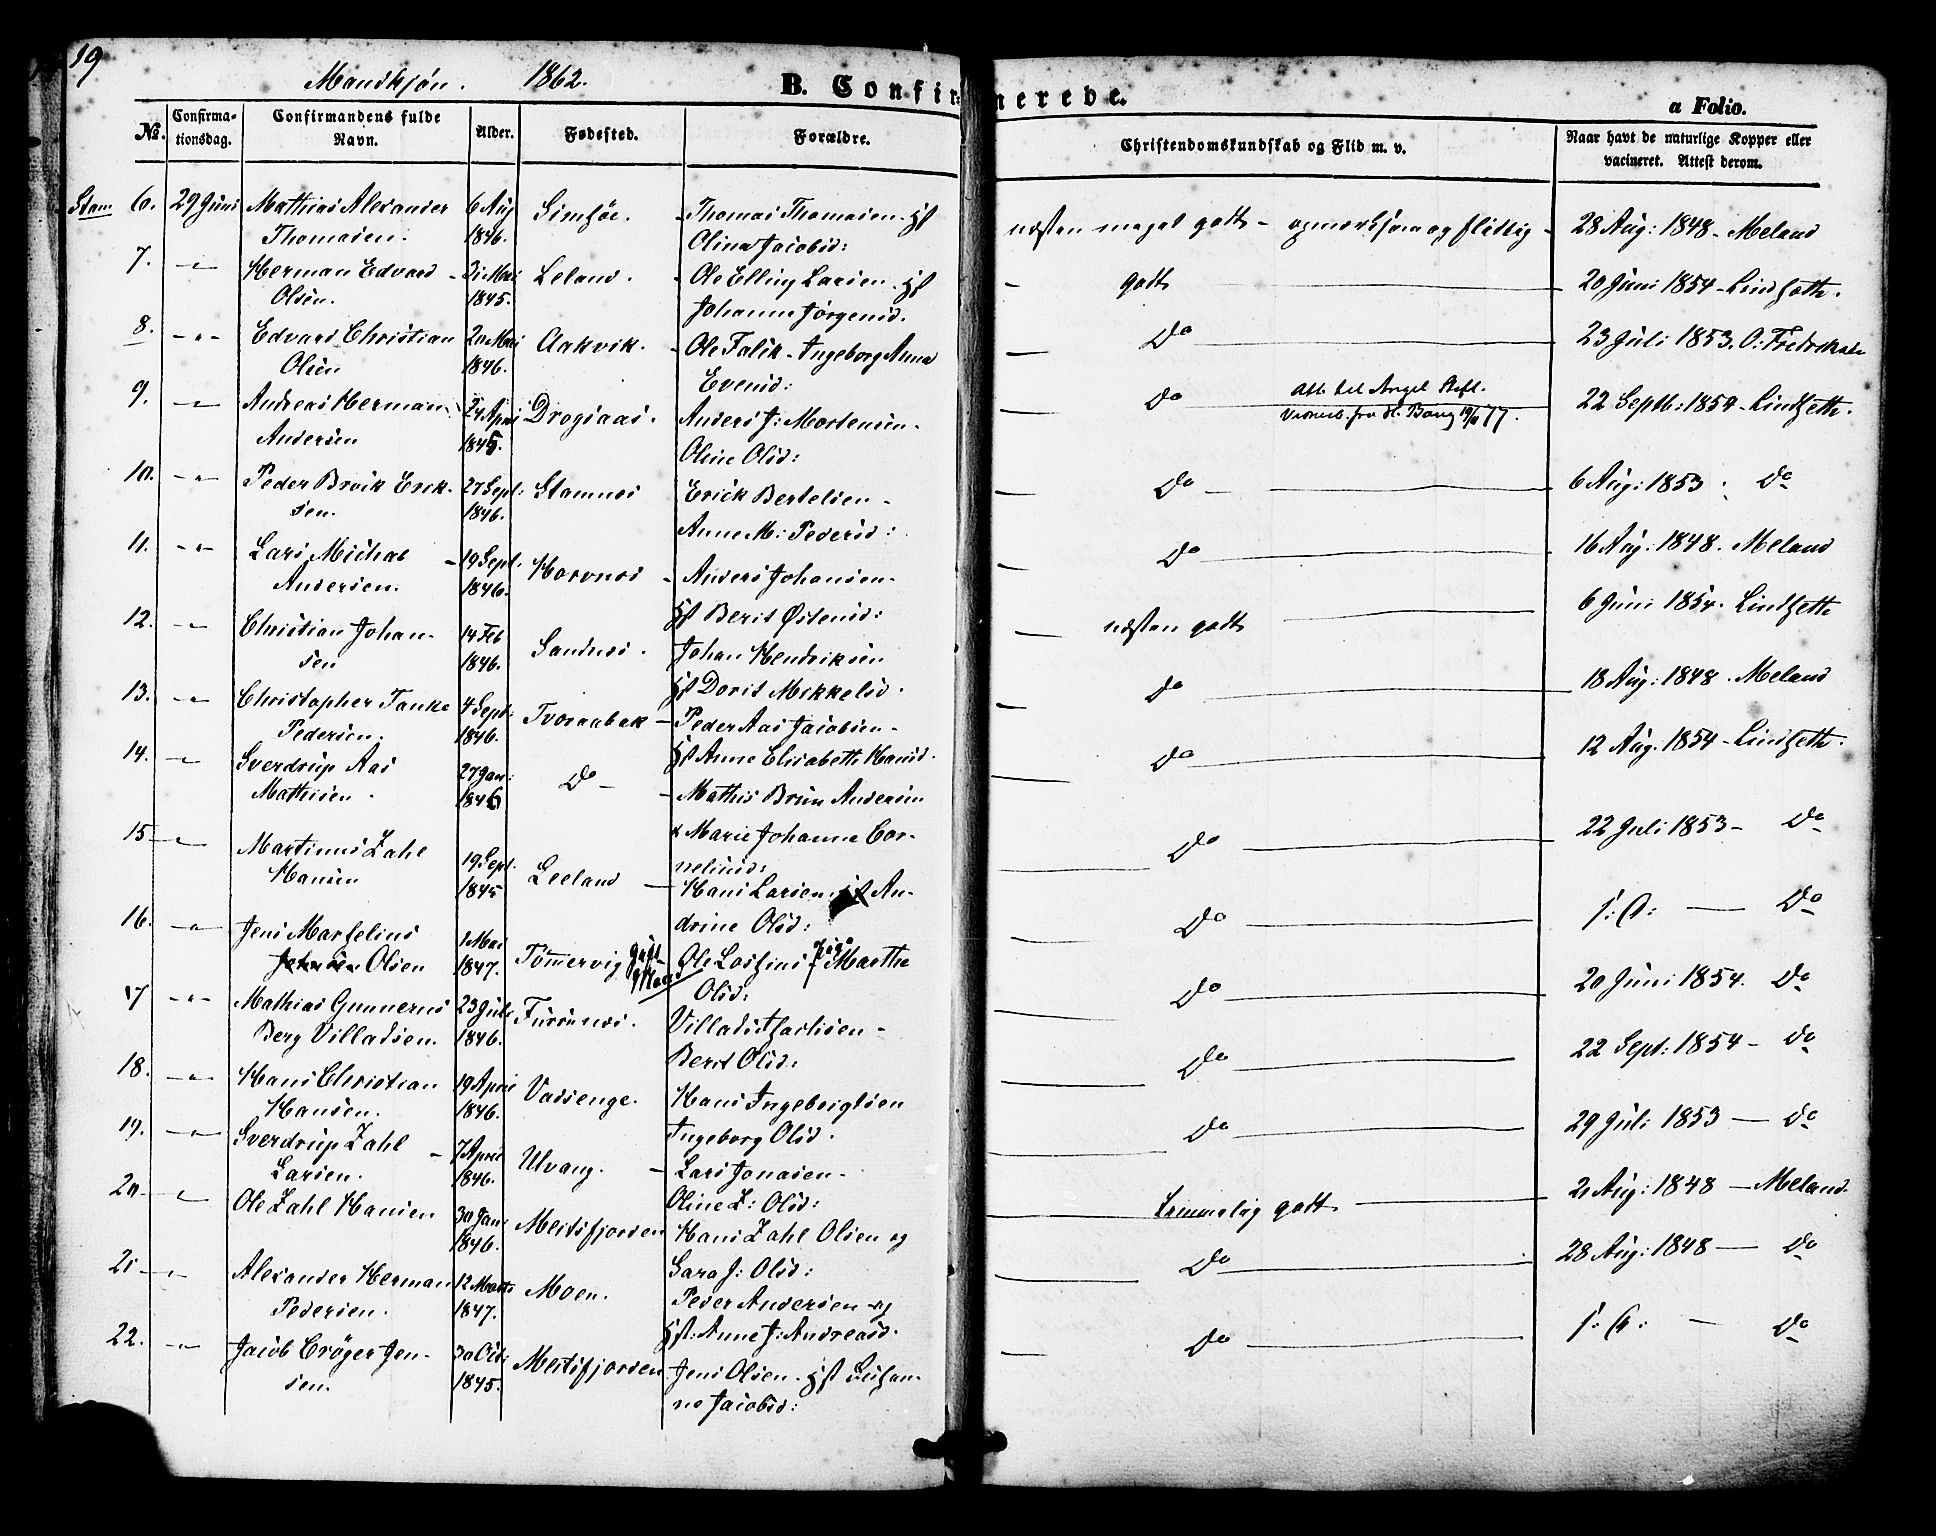 19
Mandkjøn. 1862. B. Confirmerede. a Folio.
No. Confirmationsdag. Confirmandens fulde Navn. Alder. Fødested. Forældre. Christendomskundskab og Flid m. v. Naar havt de naturlige Kopper eller vacineret. Attest derom.
Stam 6. 29 Juni Mathias Alexander 6 Aug Simsøe. Thomas Thomasen
Thomasen. 1846. Olina Jacobsd:
næsten meget godt - opmærksom og flittig - 28 Aug: 1848 - Meland
7. Herman Edvard 31 Mai Leland. Ole Elling Larsen
Olsen. 1845. Johanne Jørgensd.
godt 20 Juni 1854 - Lindseth.
8. Edvard Christian 20 Mai Aakvik. Ole Falik - Ingeborg Anna
Olsen 1846. Evensd:
Do 23 Juli 1853. O: Fredriksen
9. Andreas Herman 24 April Drogsaas. Anders J: Mortensen
Andersen 1845. Oline Olsd:
Do Att. til 22 Septb: 1854 - Lindseth.
10. Peder Brvik Erik- 27 Sept: Stamnes Erick Bertelsen -
sen. 1846. Anne M: Pedersd:
Do 6 Aug: 1853 Do
11. Lars Michal 19 Sept. Havnes Anders Johansen -
Andersen. 1846. Berit Østensd:
Do 16 Aug: 1848. Meland
12. Christian Johan- 14 Feb Sandnes. Johan Hendriksen
sen 1846. Dorit Mikkelsd.
næsten godt 6 Juni 1854. Lindseth
13. Christopher Tanke 4 Sept: Tveraabak Peder Aas Jacobsen -
Pedersen. 1846. Anne Elisabeth Hansd.
Do 18 Aug: 1848. Meland
14. Sverdrup Aas 27 Jan: Do Mathis Brun Andersen
Mathisen. 1846 Marie Johanne Cor-
nelius:
Do 12 Aug. 1854 - Lindseth.
15 Martinus Zahl 19 Sept. Leeland Hans Larsen An-
Hansen 1845 drine Olsd:
Do 22 Juli 1853 - Do
16. Jens Marselius 1 Mai Tømmervig Ole Lossius Marthe
Olsen 1847. Olsd:
Do Do
17 Mathias Gunnerus 23 Juli Fursunes. Villads
Berg Villadsen. 1846. Berit Olsd:
Do 20 Juni 1854. Do
18. Hans Christian 19 April Vassenge. Hans Ingebrigtsen
Hansen. 1846. Ingeborg Olsd.
Do 22 Sept: 1854 - Do
19. Sverdrup Zahl 7 April Ulvang. Lars Jonasen -
Larsen. 1846. Oline Z: Olsd:
Do 29 Juli 1853 - Do
20 Ole Zahl Hansen 30 Jan: Meitsfjorden Hans Zahl Olsen og
1846. Sara J: Olsd:
temmelig godt 21 Aug: 1848 - Meland
21 Alexander Herman 12 Marts Moen. Peder Andersen og
Pedersen. 1847. Anne J: Andreasd.
Do 28 Aug: 1848 - Do
22. Jacob Crøger Jen- 30 Oct: Meitsfjorden Jens Olsen
sen. 1845. ne Jacobsd:
Do Do